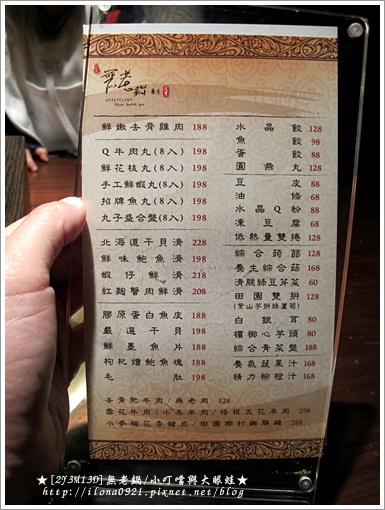 無老鍋 養生
鮮嫩去骨雞肉 188
Q牛肉丸(8入) 198
鮮花枝丸(8入) 198
手工鮮蝦丸(8入) 198
招牌魚丸(8入) 198
丸子盛合盤(8入) 198
北海道干貝滑 228
鮮味鮑魚滑 198
蝦仔鮮滑 218
紅麴蟹肉鮮滑 208
膠原蛋白魚皮 198
嚴選干貝 198
鮮墨魚片 168
枸杞燴鮑魚塊 188
毛肚 198
水晶餃 128
魚餃 98
蛋餃 88
圓燕丸 128
豆皮 88
油條 68
水晶Q粉 88
凍豆腐 68
低熱量雙捲 128
綜合菇餚 128
養生綜合菇 168
清脆綠豆芽菜 60
田園雙拼 128
(紫山芋餅綠蘆筍)
白銀耳 80
檳榔心芋頭 80
綜合青菜盤 188
養氣蔬果汁 168
精力柳橙汁 168
去骨肥牛肉/無老肉 328
雪花牛肉/小羔羊肉/培根五花羊肉 298
小麥梅花香豬肉/田園鄉村嫩豚豬 288
★[2Y3M13D]無老鍋/小叮噹與大眼蛙★
http://ilona0921.pixnet.net/blog